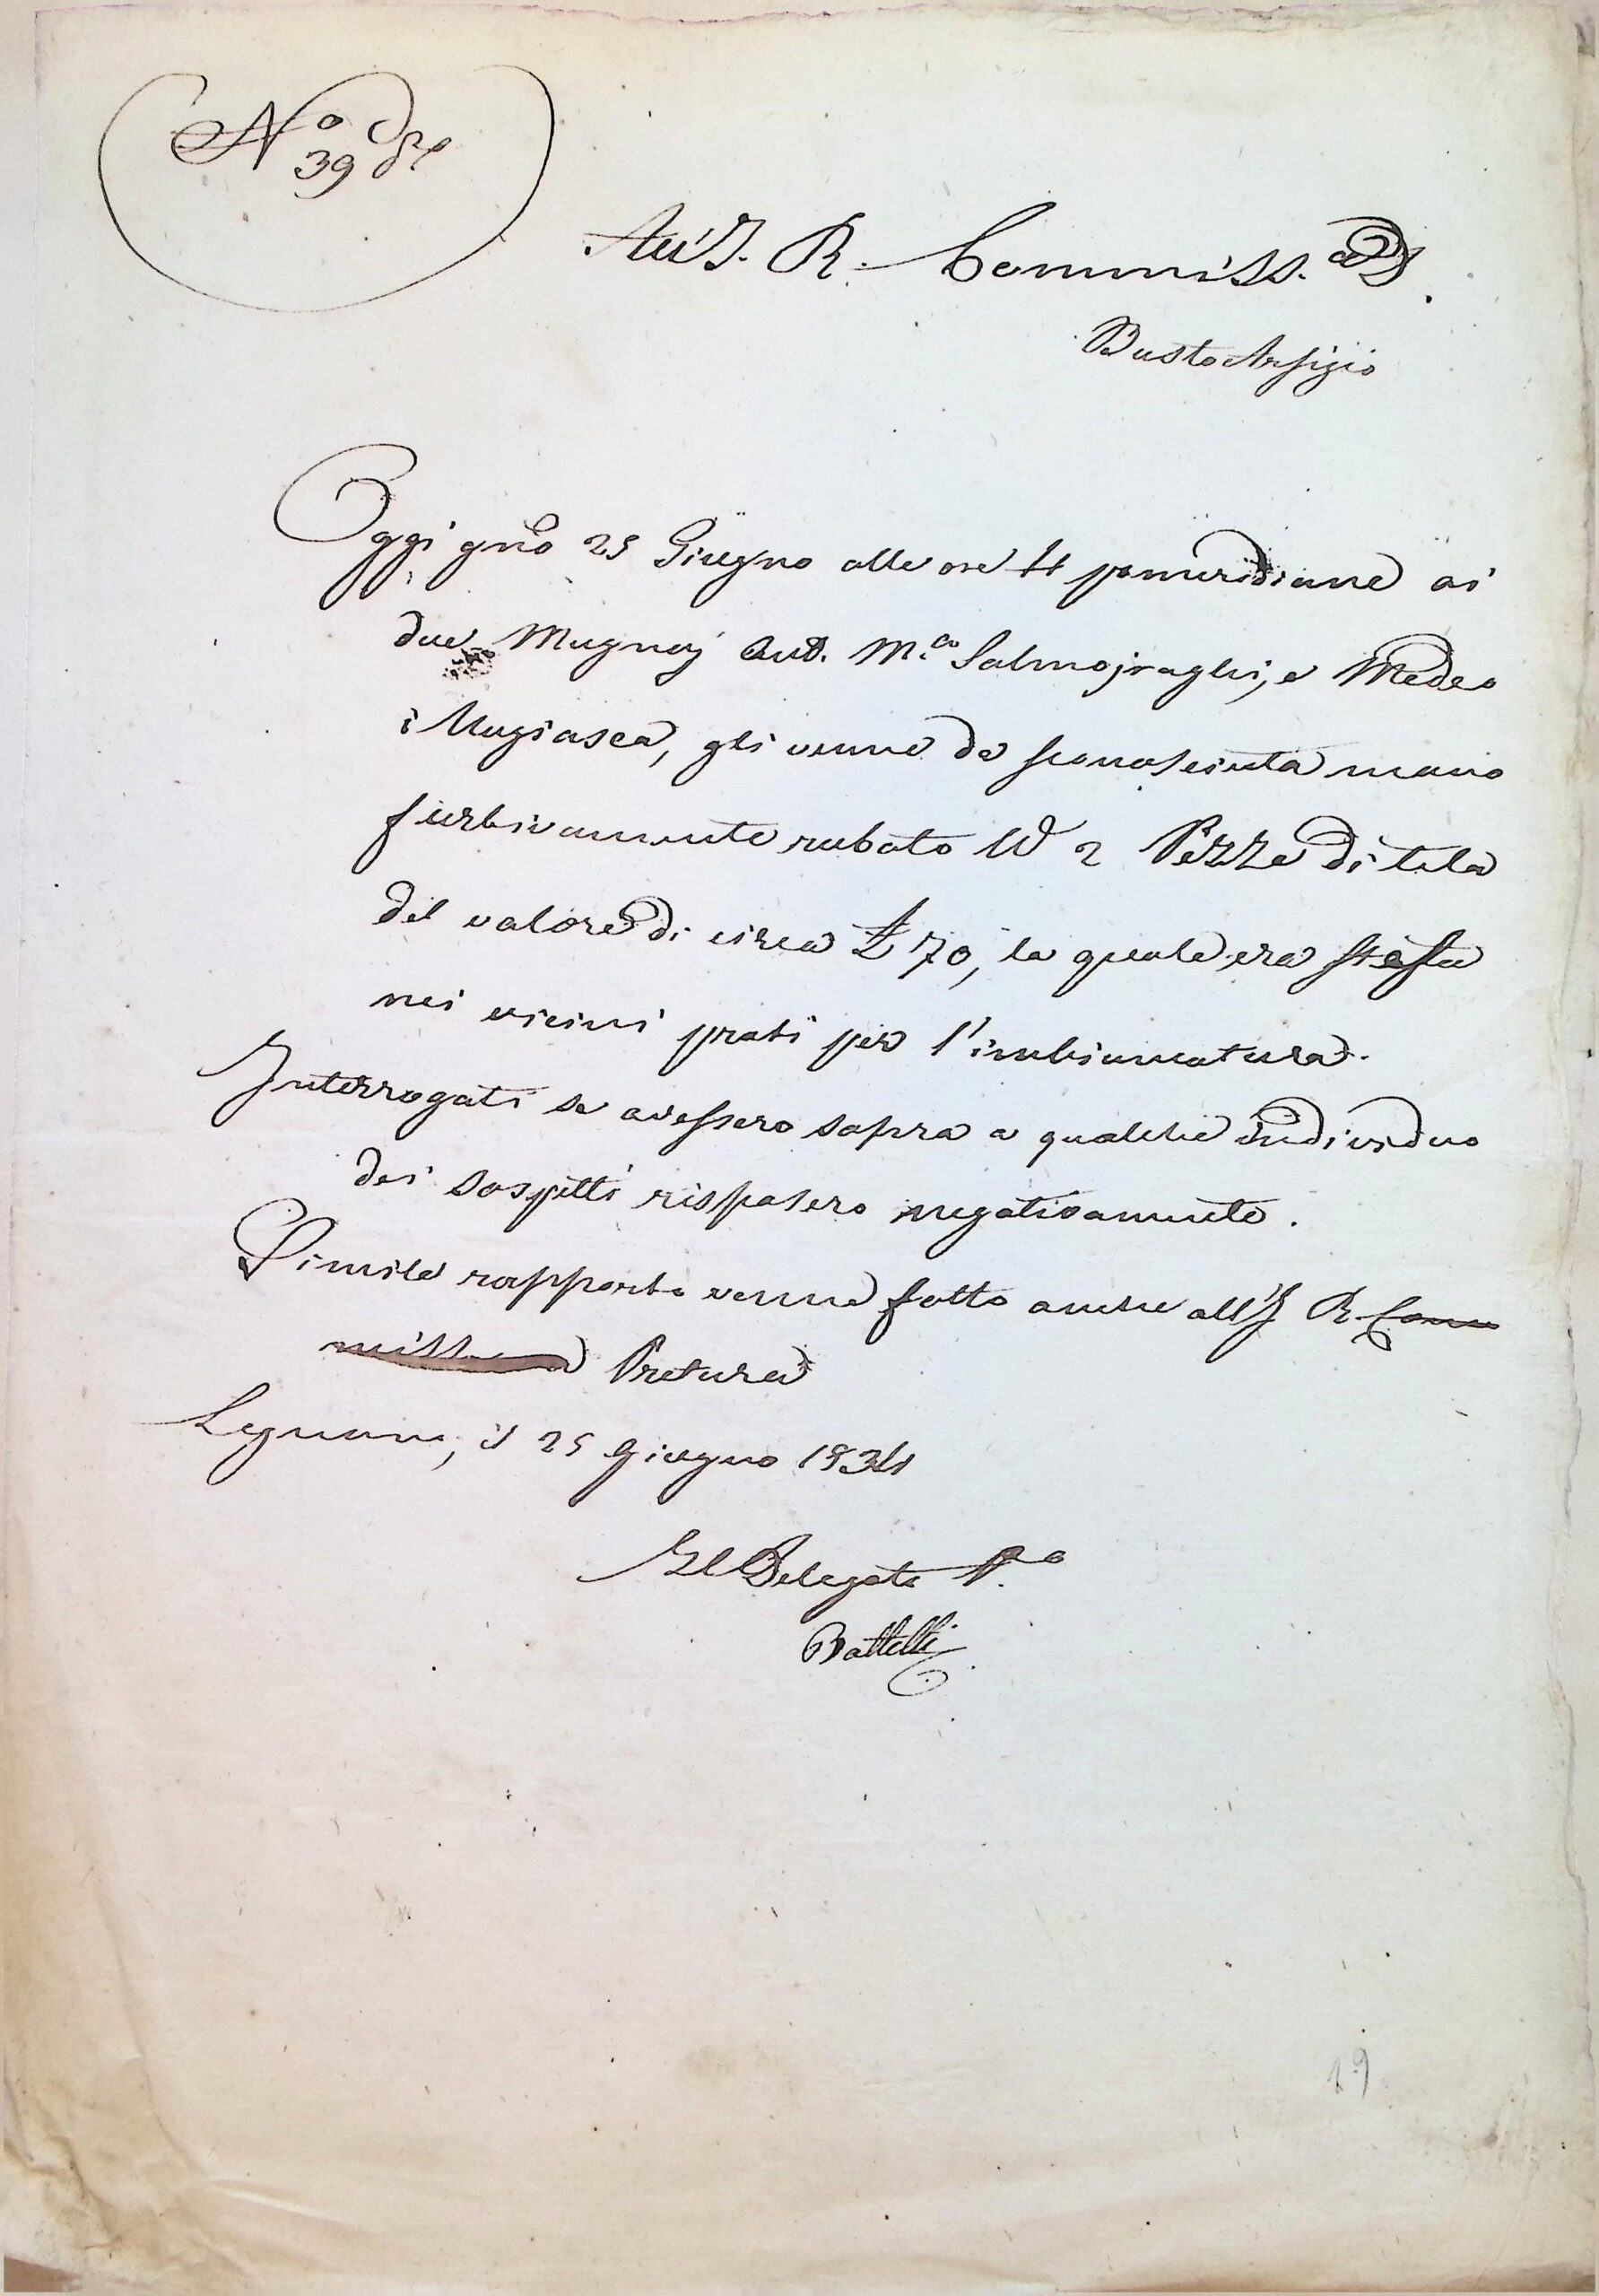 N.o
39
All'I. R. Commiss.a D.
Busto Arsizio
Oggi gno 25 Giugno alle ore 4 pomeridiane ai
due Mugnaj Ant. M.a Salmojraghi, e Medeo
Mugiasca, gli venne da sconosciuta mano
furtivamente rubato N 2 Pezze di tela
del valore di circa £ 70, la quale era stesa
nei vicini prati per l'imbiancatura.
Interrogati se avessero sopra a qualche individuo
dei sospetti risposero negativamente.
Simile rapporto venne fatto anche all'I. R. Com
miss a Pretura
Legnano, il 25 Giugno 1834
Il Delegato P.o
Battelli
19